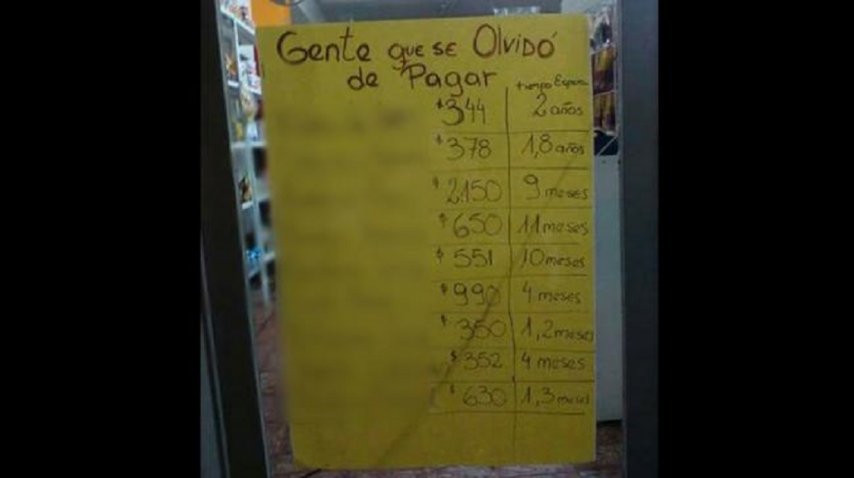 Gente que se Olvidó
de Pagar
tiempo Espera
$344 2 años
$378 1,8 años
$2.150 9 meses
$650 11 meses
$551 10 meses
$990 4 meses
$350 1,2 meses
$352 4 meses
$630 1,3 meses